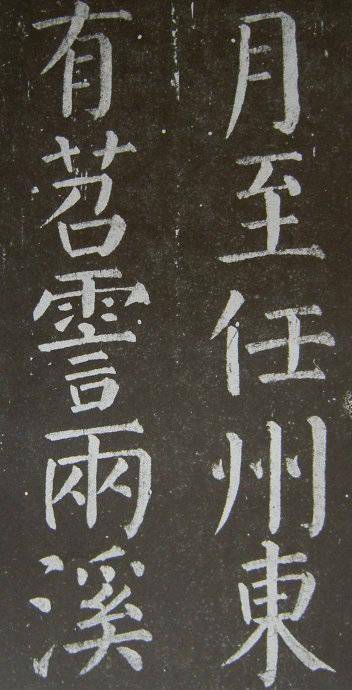 月至任州東
有苕霅兩溪